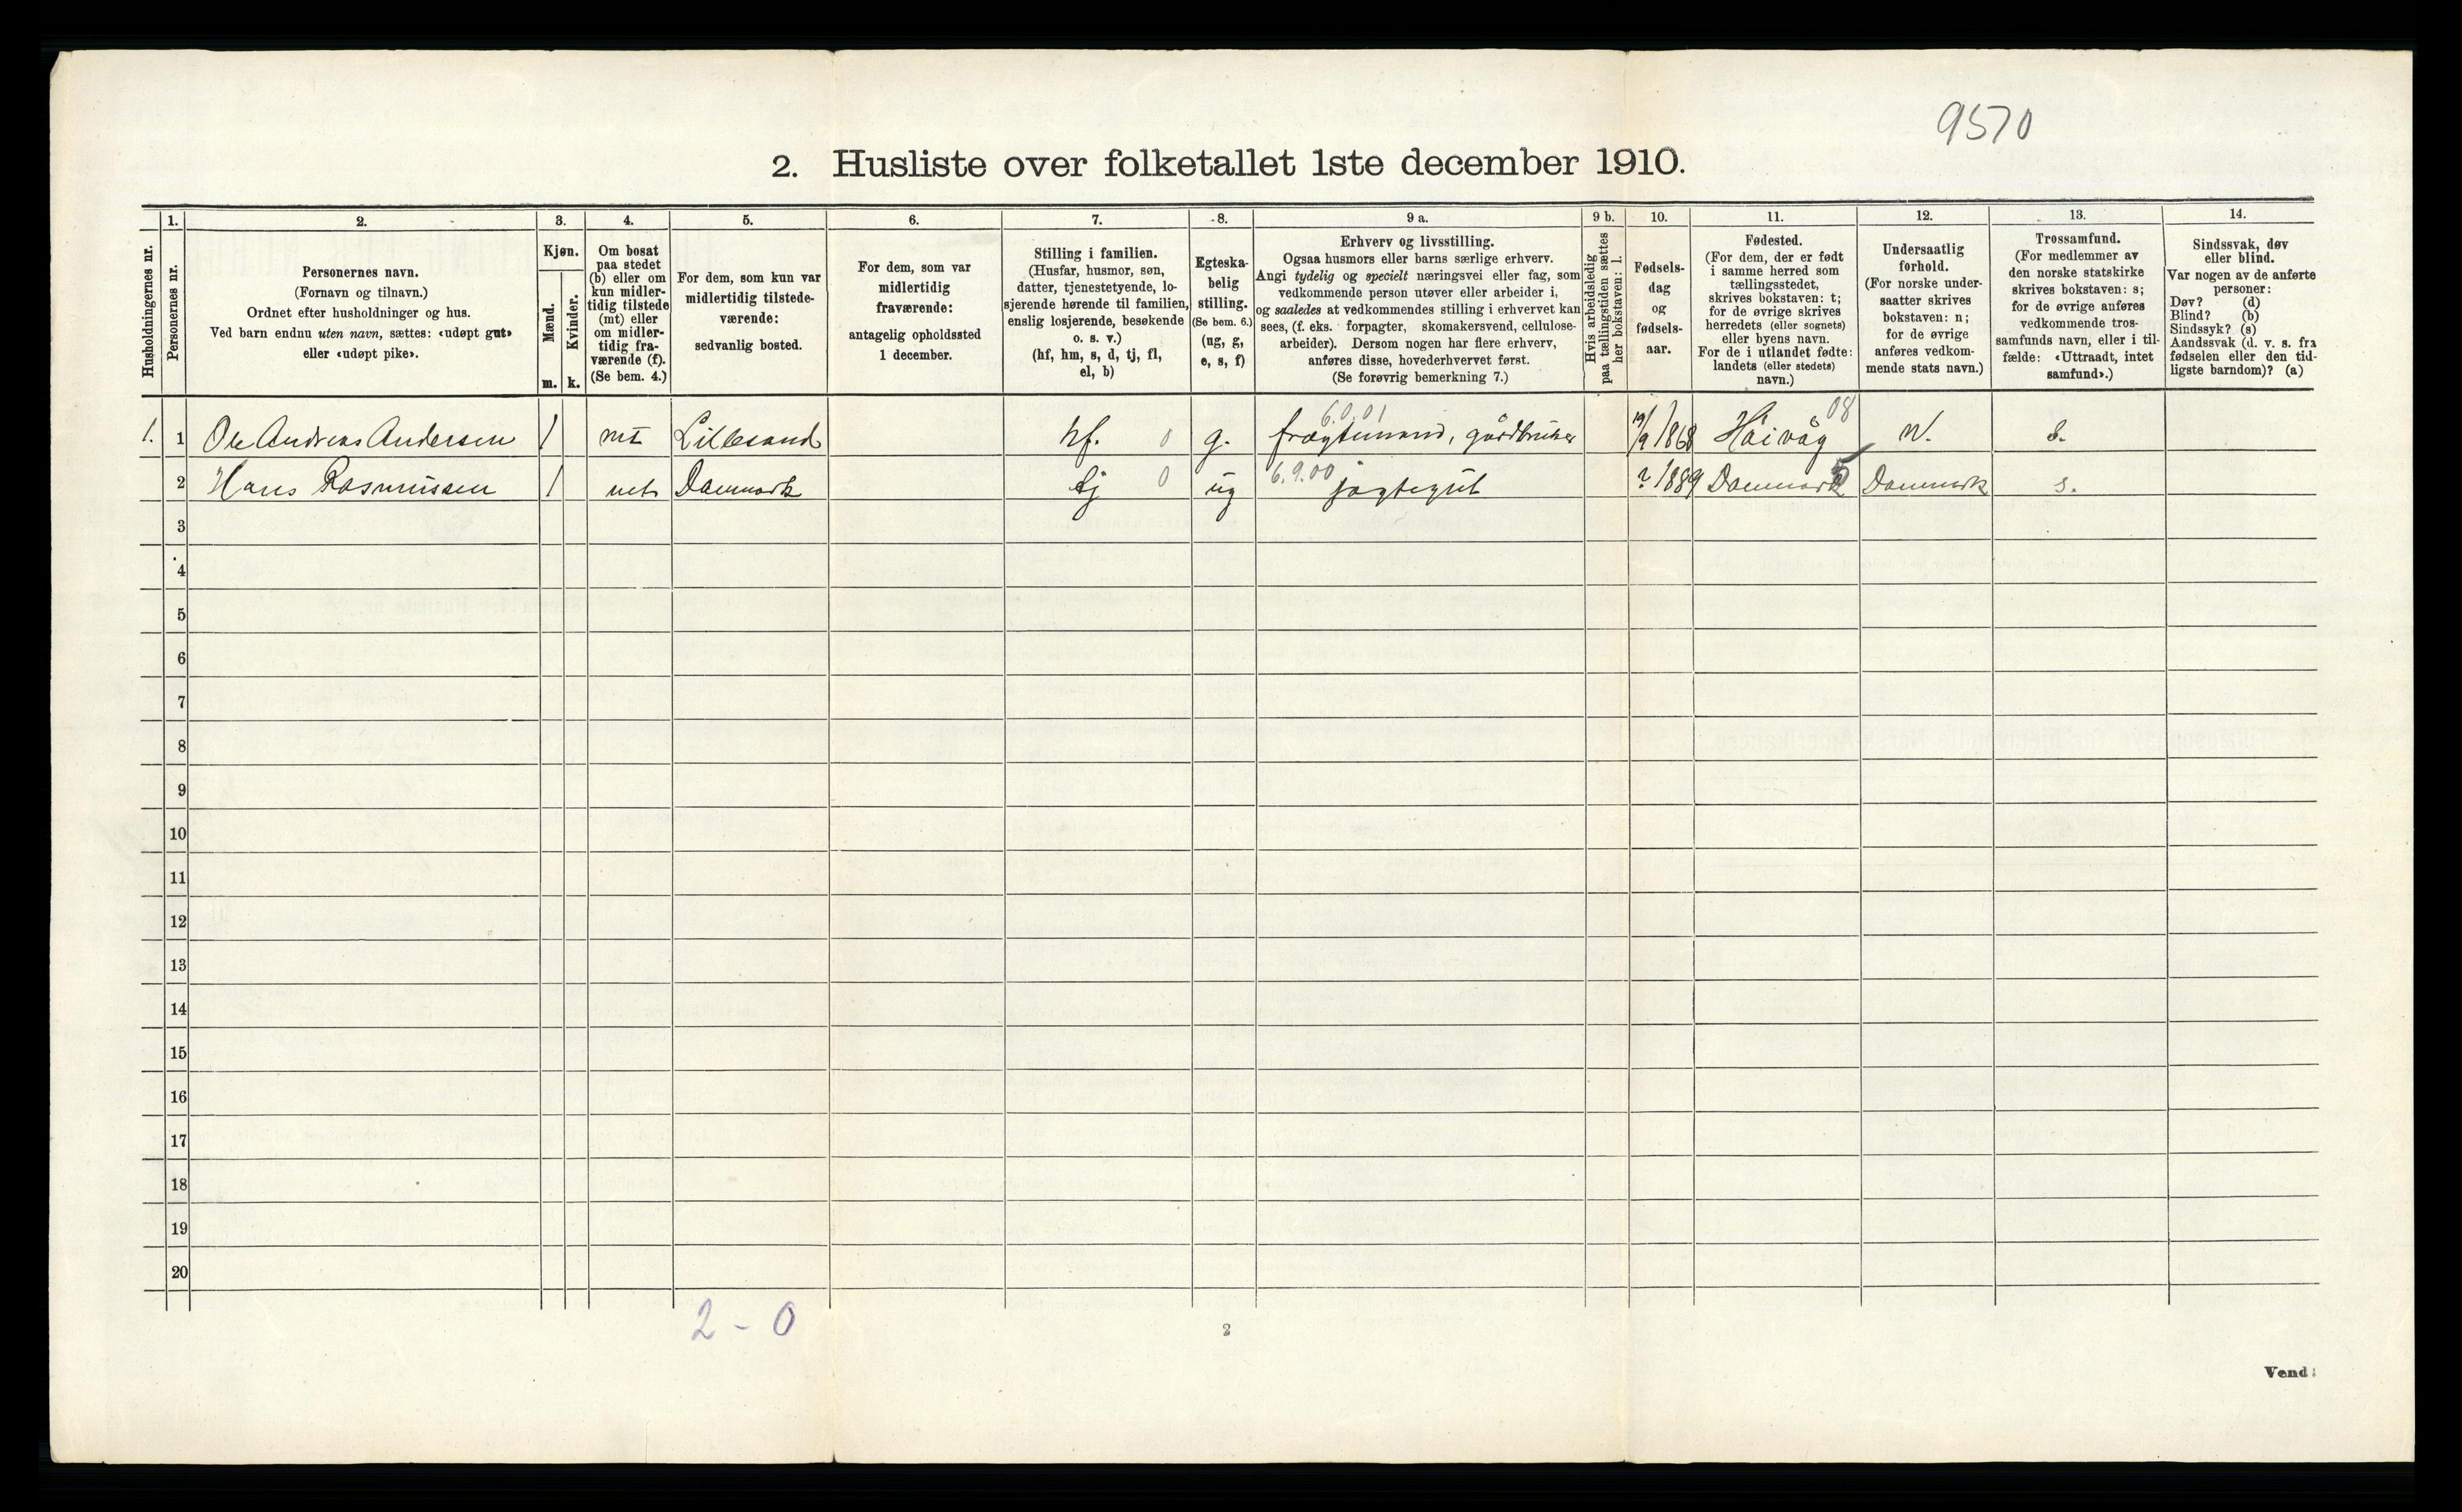 9570
2. Husliste over folketallet 1ste december 1910.
Husholdningernes nr.
1.
Personernes nr.
2.
Personernes navn.
(Fornavn og tilnavn.)
Ordnet efter husholdninger og hus.
Ved barn endnu uten navn, sættes: «udøpt gut»
eller «udøpt pike».
3.
Kjøn.
Mænd.
Kvinder.
m. k.
4.
Om bosat
paa stedet
(b) eller om
kun midler-
tidig tilstede
(mt) eller
om midler-
tidig fra-
værende (f).
(Se bem. 4.)
5.
For dem, som kun var
midlertidig tilstede-
værende:
sedvanlig bosted.
6.
For dem, som var
midlertidig
fraværende:
antagelig opholdssted
1 december.
7.
Stilling i familien.
(Husfar, husmor, søn,
datter, tjenestetyende, lo-
sjerende hørende til familien,
enslig losjerende, besøkende
o. s. v.)
(hf, hm, s, d, tj, fl,
el, b)
8.
Egteska-
belig
stilling.
(Se bem. 6.)
(ug, g,
e, s, f)
9 a.
Erhverv og livsstilling.
Ogsaa husmors eller barns særlige erhverv.
Angi tydelig og specielt næringsvei eller fag, som
vedkommende person utøver eller arbeider i,
og saaledes at vedkommendes stilling i erhvervet kan
sees, (f. eks. forpagter, skomakersvend, cellulose-
arbeider). Dersom nogen har flere erhverv,
anføres disse, hovederhvervet først.
(Se forøvrig bemerkning 7.)
9 b.
Hvis arbeidsledig
paa tællingstiden sættes
her bokstaven: l.
10.
Fødsels-
dag
og
fødsels-
aar.
11.
Fødested.
(For dem, der er født
i samme herred som
tællingsstedet,
skrives bokstaven: t;
for de øvrige skrives
herredets (eller sognets)
eller byens navn.
For de i utlandet fødte:
landets (eller stedets)
navn.)
12.
Undersaatlig
forhold.
(For norske under-
saatter skrives
bokstaven: n;
for de øvrige
anføres vedkom-
mende stats navn.)
13.
Trossamfund.
(For medlemmer av
den norske statskirke
skrives bokstaven: s;
for de øvrige anføres
vedkommende tros-
samfunds navn, eller i til-
fælde: «Uttraadt, intet
samfund».)
14.
Sindssvak, døv
eller blind.
Var nogen av de anførte
personer:
Døv? (d)
Blind? (b)
Sindssyk? (s)
Aandssvak (d. v. s. fra
fødselen eller den tid-
ligste barndom)? (a)
6.0.01 08
1. 1 Ole Andreas Andersen 1 mt Lillesand hf. 0 g. fragtemand, gårdbruker 19/9 1868 Håivåg N. s.
2 Hans Rasmussen 1 mt Danmark tj 0 ug 6.9.00 jagtegut ? 1889 Danmark 5 Danmark s.
3
4
5
6
7
8
9
10
11
12
13
14
15
16
17
18
19
20
2 - 0
2
Vend!